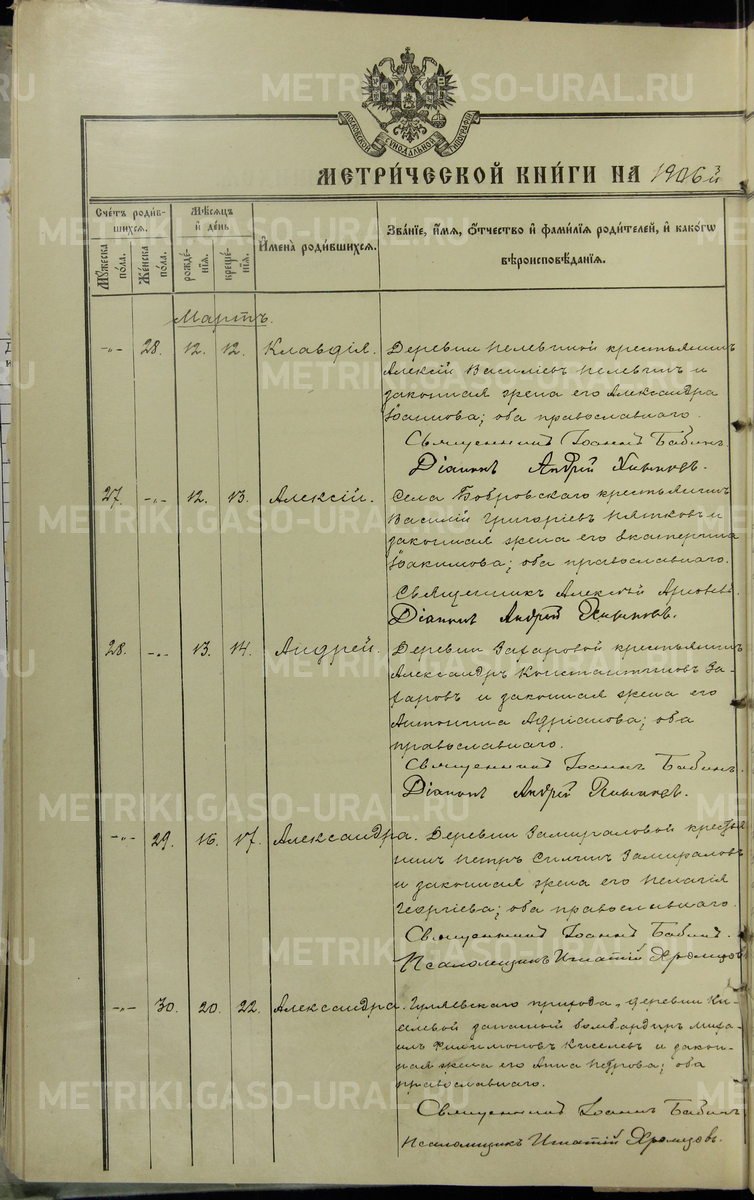 МОСКОВСКОЙ СУНОДАЛЬНОЙ ТИПОГРАФІИ
МЕТРИ́ЧЕСКОЙ КНИ́ГИ НА 1906й
Сче́тъ роди́в-
шихся.
Му́жеска по́ла.
Же́нска по́ла.
Мѣ́сяцъ
и҆ де́нь
рожде́-
нїя.
креще́-
нїя.
И҆мена̀ роди́вшихся.
Зва́нїе, и҆́мя, ѻ҆́тчество и҆ фами́лїя роди́телей, и҆ како́гѡ
вѣроисповѣ́данїя.
Мартъ.
-„- 28. 12. 12. Клавдія. Деревни Пелевиной крестьянинъ
Алексій Василіевъ Пелевинъ и
законная жена его Александра
Іоаннова; оба православнаго.
Священникъ Іоаннъ Бабинъ
Діаконъ Андрей
27. -„- 12. 13. Алексій. Села Бобровскаго крестьянинъ
Василій Григоріевъ Пятковъ и
законная жена его Екатерина
Іоакимова; оба православнаго.
Священникъ Алексѣй
Діаконъ Андрей
28. -„- 13. 14. Андрей. Деревни Захаровой крестьянинъ
Александръ Константиновъ За-
харовъ и законная жена его
Антонина Адріанова; оба
православнаго.
Священникъ Іоаннъ Бабинъ.
Діаконъ Андрей
-„- 29. 16. 17. Александра. Деревни Замираловой крестья
нинъ Петръ Силинъ Замираловъ
и законная жена его Пелагія
Георгіева; оба православнаго.
Священникъ Іоаннъ Бабинъ.
Псаломщикъ Игнатій Хромцовъ
-„- 30. 20. 22. Александра. Гуляевскаго прихода, деревни Ки-
селевой запасный бомбардиръ Миха-
илъ Филимоновъ Киселевъ и закон-
ная жена его Анна Петрова; оба
православнаго.
Священникъ Іоаннъ Бабинъ
Псаломщикъ Игнатій Хромцовъ.
METRIKI.GASO-URAL.RU